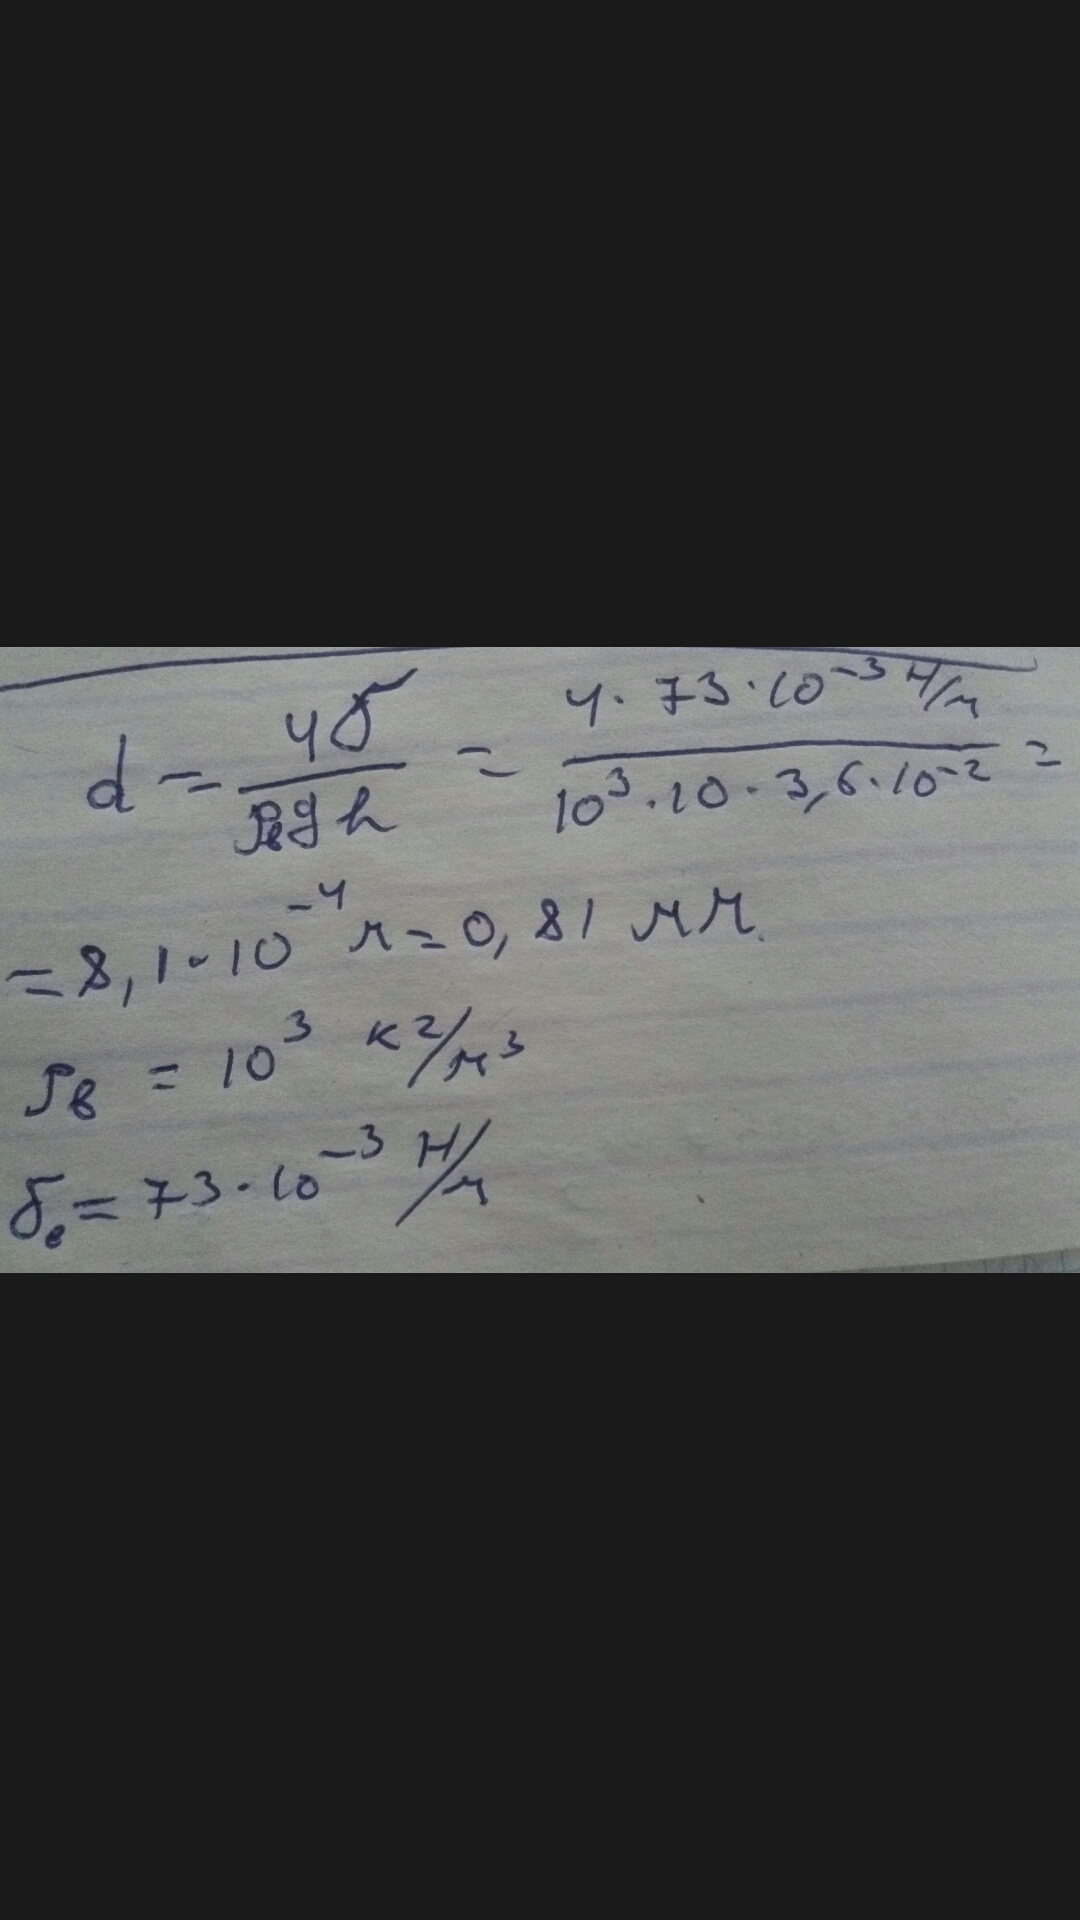 d = 4σ / ρв g h = 4 · 73 · 10⁻³ Н/м / 10³ · 10 · 3,6 · 10⁻² =
= 8,1 · 10⁻⁴ м = 0,81 мм.
ρв = 10³ кг/м³
σв = 73 · 10⁻³ Н/м